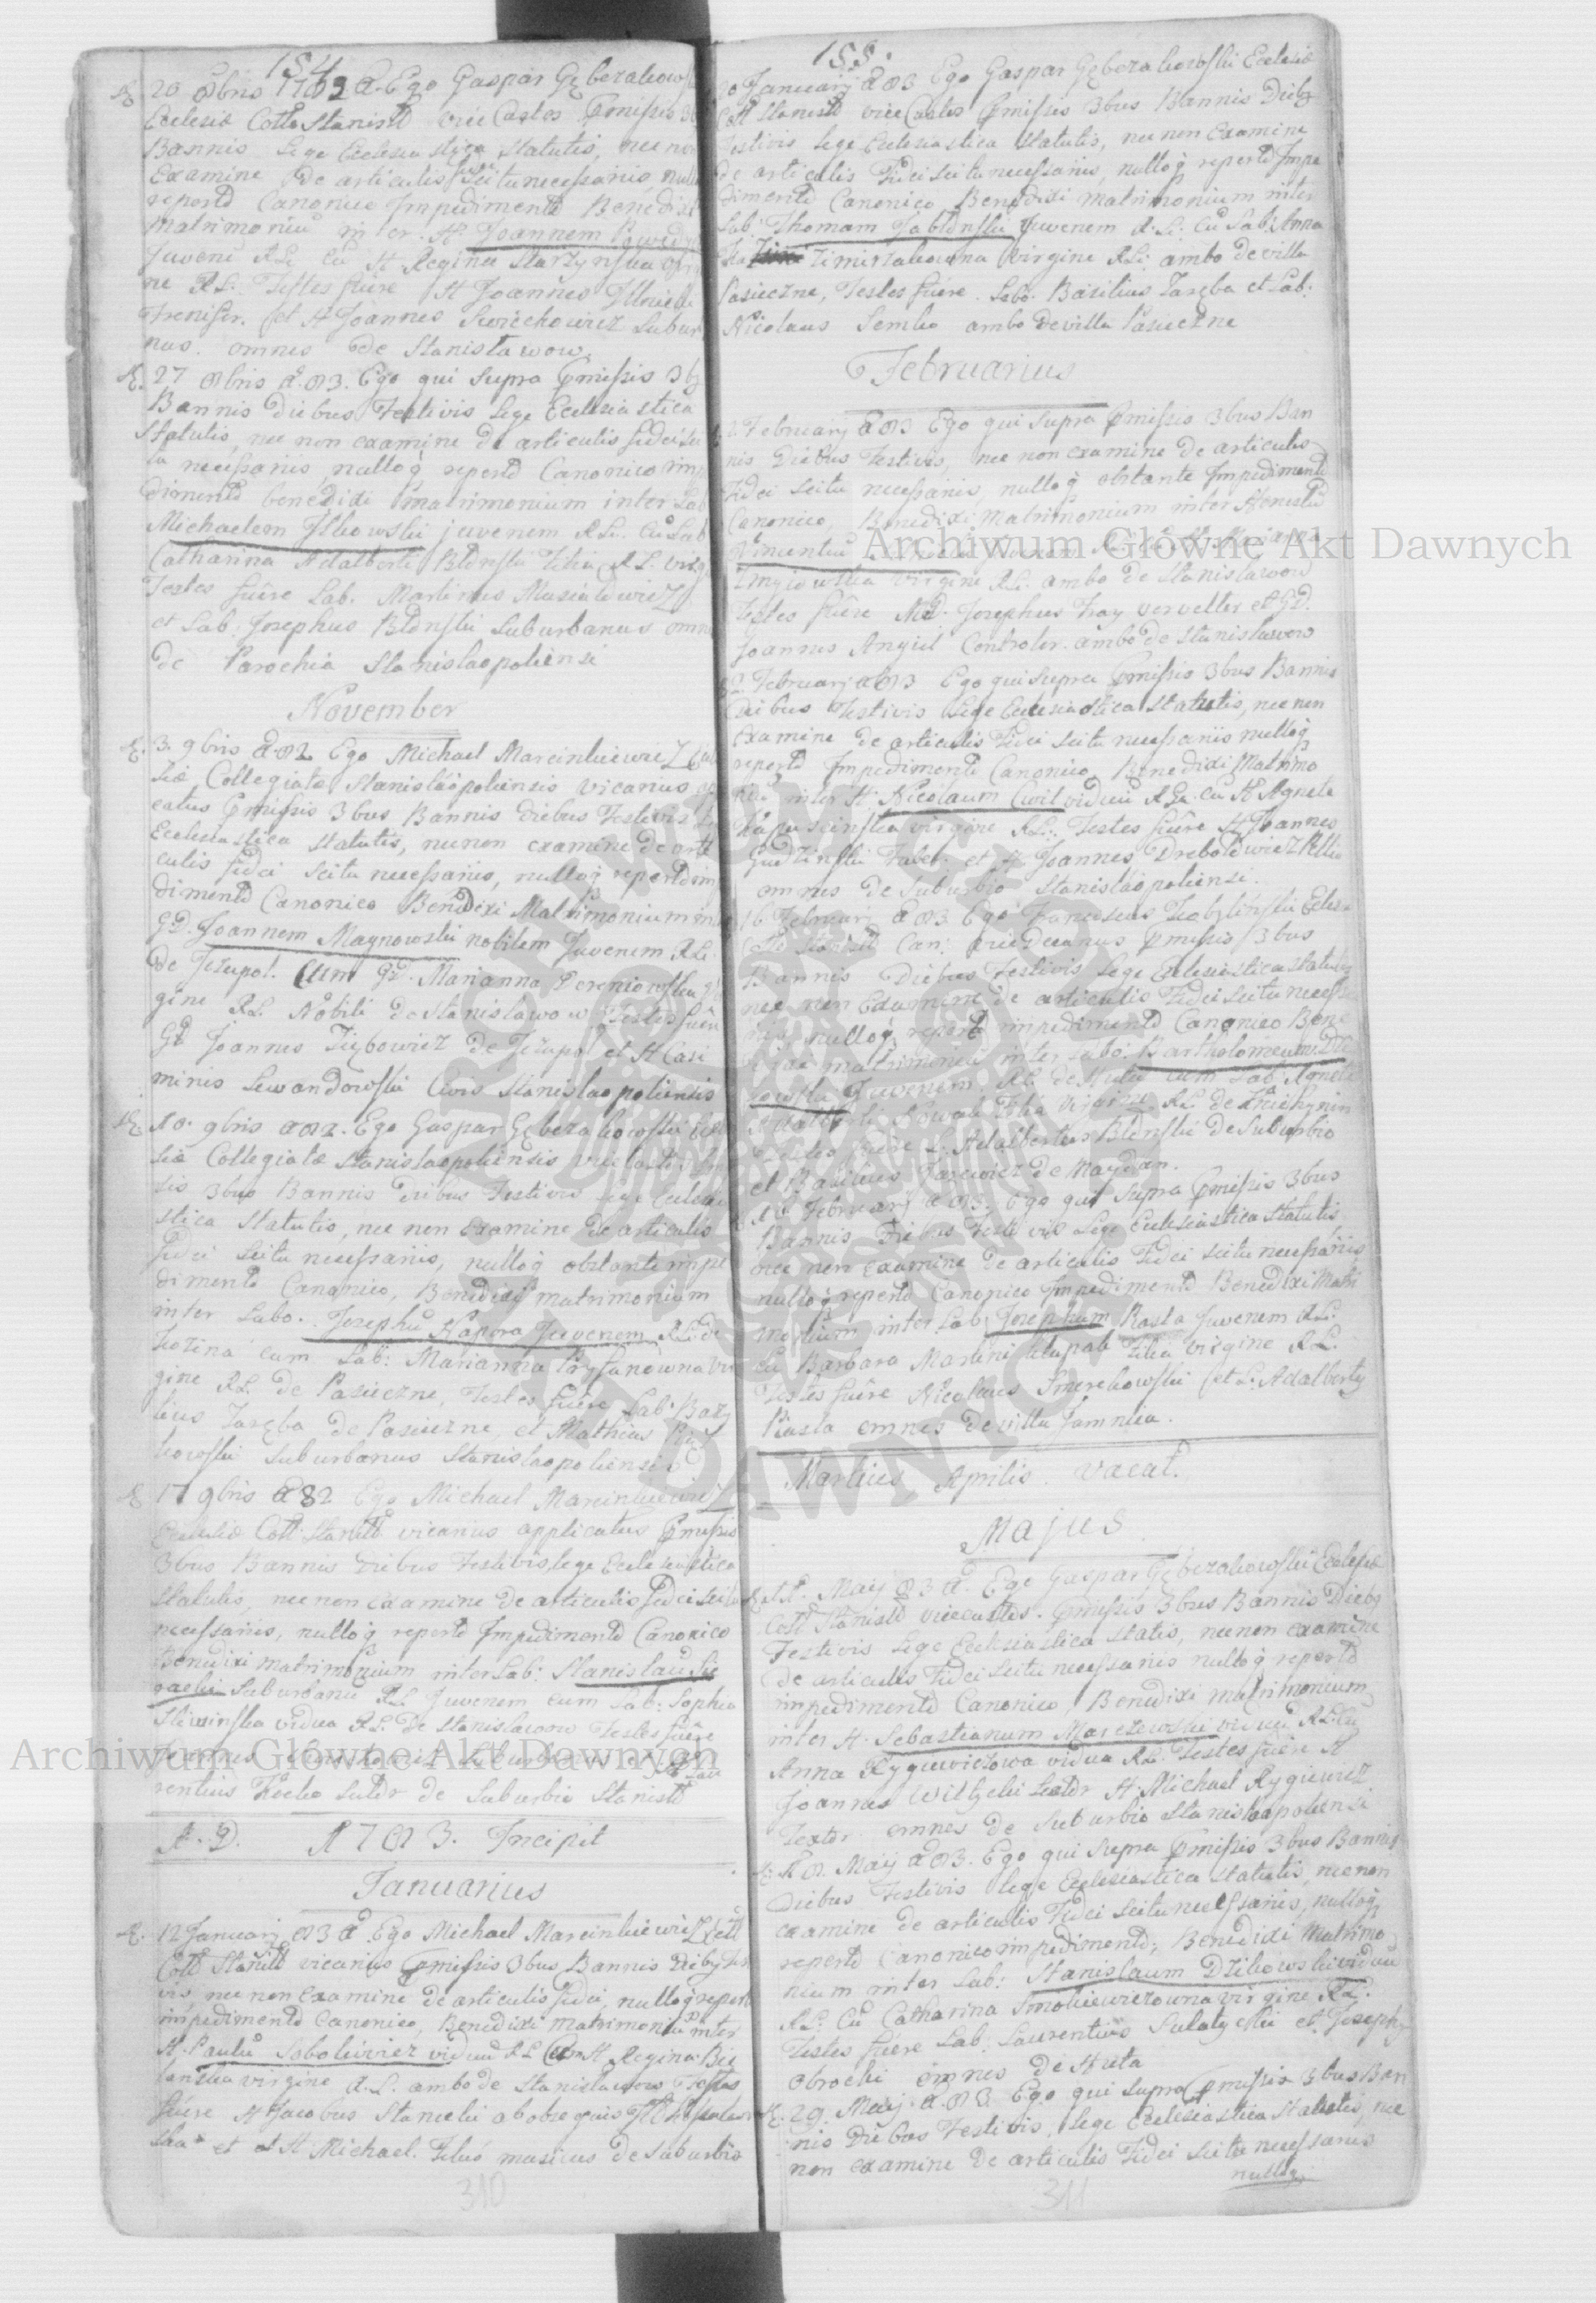 154
20 8bris 1782 A. Ego Gaspar Gębczakows
Ecclesiæ Collta Stanisltt vice Custos Præmissis 3b
Bannis Lege Ecclesiastica Statutis, nec non
Examine de articulis fidei scitu necessariis, nullo
repertô Canonico Impedimentô Benedixi
Matrimoniũ inter H.
Juvenẽ R.L. cũ H Regina Starzynska Virgi
ne RL. Testes fuêre H Joannes
Frenifer. et H Joannes Swiechowicz Subur
nus. omnes de Stanisławow.
27 8bris A. 83. Ego qui Supra Præmissis 3b
Bannis diebus Festivis Lege Ecclesiastica
Statutis, nec non examine de articulis fidei sci
tu necessariis, nulloq repertô Canonico imp
dimentô benedixi matrimonium inter Lab
Michaelem Ilkowski juvenem RL. cũ Lab
Catharina Adalberti Błonski Filia RL. virg
Testes fuêre Lab. Martinus Musiałowicz
et Lab: Josephus Błonski Suburbanus omn
de Parochia Stanislaopoliensi
November
3. 9bris A. 82 Ego Michael Marcinkiewicz Eccle
siæ Collegiatæ Stanislaopoliensis vicarius ap
catus Præmissis 3bus Bannis diebus Festivis
Ecclesiastica statutis, nec non examine de arti
culis fidei scitu necessariis, nulloq repertô im
dimentô Canonico Benedixi Matrimonium in
GD. Joannem Maynowski nobilem Juvenem RL.
de Jezupol. Cum GD. Marianna
gine RL. Nobili de Stanisławow Testes fuêre
GD Joannes Ziębowicz de Jezupol et H Casi
mirus Lewandowski Civis Stanislaopoliensis
10. 9bris A 82. Ego Gaspar Gębczakowski Eccl
siæ Collegiatæ Stanislaopoliensis vicecustos
sis 3bus Bannis diebus Festivis Lege Ecclesia
stica Statutis, nec non Examine de articulis
fidei scitu necessariis, nulloq obstante impe
dimentô Canonico, Benedixi matrimonium
inter Labo. Josephũ Napora Juvenem RL. de
cum Lab: Marianna Vir
gine RL. de Pasieczne, Testes fuêre Lab. Bazy
lius Zaręba de Pasieczne, et Mathias
kowski Suburbanus Stanislaopoliensis
17 9bris A 82 Ego Michael Marcinkiewicz
Ecclesiæ Coll: Stanisltt vicarius applicatus Præmissis
3bus Bannis diebus Festivis lege Ecclesiastica
statutis, nec non examine de articulis fidei scitu
necessariis, nulloq repertô Impedimentô Canonico
Benedixi matrimonium inter Lab: Stanislaũ
Suburbanũ RL. Juvenem cum Lab. Sophia
vidua RL. de Stanisławow Testes fuêre
Joannes
rentius Sutor de Suburbio Stanisltt
A. D. 1783. Incipit
Januarius
12 Januarij 83 A Ego Michael Marcinkiewicz
Colltt Stanisltt vicarius Præmissis 3bus Bannis Diebq Fes
vis, nec non Examine de articulis fidei, nulloq repert
impedimentô Canonico, Benedixi matrimoniũ inter
H. Paulũ Sobolewicz viduũ RL Cum H Regina
virgine R.L. ambo de Stanisławow Testes
fuêre H Jacobus Stanecki
et H Michael musicus de Suburbio
310
155.
20 Januarij A 83 Ego Gaspar Gębczakowski Ecclesiæ
Coll Stanisltt viceCustos Præmissis 3bus Bannis Dieb
Festivis lege Ecclesiastica Statutis, nec non Examine
de articulis Fidei scitu necessariis, nulloq repertô Impe
dimentô Canonico Benedixi matrimonium inter
Lab: Thomam Jabłonski Juvenem R.L. cũ Lab: Anna
virgine RL. ambo de villa
Pasieczne, Testes fuêre Labo. Basilius Zaręba et Lab.
Nicolaus Semko ambo de villa Pasieczne
Februarius
2. Februarij A 83 Ego qui Supra Præmissis 3bus Ban
nis Diebus Festivis, nec non examine de articulis
Fidei scitu necessariis, nulloq obstante Impedimentô
Canonico, Benedixi Matrimonium inter Honestũ
Vincentiũ
virgine RL. ambo de Stanisławow
Testes fuêre MD. Josephus Fray vervelter et GD.
Joannes Angiel Controlor. ambo de Stanisławow
2. Februarij A 83 Ego qui Supra Præmissis 3bus Bannis
diebus Festivis Lege Ecclesiastica Statutis, nec non
Examine de articulis Fidei scitu necessariis nulloq
repertô Impedimentô Canonico Benedixi Matrimo
niũ inter H. Nicolaum Cwil viduũ RL. cũ H Agnete
virgine RL. Testes fuêre H Joannes
Gudzinski Faber. et H Joannes
omnes de Suburbio Stanislaopoliensi.
16 Februarij A 83 Ego Franciscus Kobylinski Eccles
Coll Stanisltt Can: vicedecanus Præmissis 3bus
Bannis Diebus Festivis Lege Ecclesiastica Statutis
nec non Examine de articulis Fidei scitu necessa
riis nulloq repertô impedimentô Canonico Bene
dixi matrimoniũ inter Labo. Bartholomeum
Juvenem RL. de Huta cum Lab. Agnete
Adalberti Filia virgine RL. de
Testes fuêre L. Adalbertus Błonski de Suburbio
et Basilius de Maydan.
16 Februarij A 83. Ego qui Supra Præmissis 3bus
Bannis Diebus Festivis Lege Ecclesiastica Statutis
nec non Examine de articulis Fidei scitu necessariis
nulloq repertô Canonico Impedimentô Benedixi Matri
monium inter Lab. Josephum Rasta Juvenem RL.
cũ Barbara Martini Filia virgine RL.
Testes fuêre Nicolaus Smerekowski et L. Adalbertq
Rasta omnes de villa Jamnica.
Martius Aprilis. vacat.
Majus
Maij 83 A. Ego Gaspar Gębczakowski Ecclesiæ
Colltt Stanisltt vicecustos. Præmissis 3bus Bannis Diebq
Festivis Lege Ecclesiastica statis, nec non examine
de articulis Fidei scitu necessariis nulloq repertô
impedimentô Canonico, Benedixi matrimonium
inter H. Sebastianum Marczewski viduũ RL. cũ
Anna Rygiewiczowa vidua RL. Testes fuêre H
Joannes Witlycki Sartor H. Michael Rygiewicz
Textor omnes de Suburbio Stanislaopoliensi
18. Maij A 83. Ego qui Supra Præmissis 3bus Bannis
Diebus Festivis lege Ecclesiastica statutis, nec non
examine de articulis Fidei scitu necessariis, nulloq
repertô Canonico impedimentô, Benedixi Matrimo
nium inter Lab: Stanislaum Dzikowski viduũ
RL. cũ Catharina Smolkiewiczowna virgine RL.
Testes fuêre Lab. Laurentius Sulatycki et Josephq
Obrocki omnes de Huta
29. Maij. A. 83. Ego qui Supra Præmissis 3bus Ban
nis Diebus Festivis, Lege Ecclesiastica Statutis, nec
non examine de articulis Fidei scitu necessariis
nulloq
311
Archiwum Główne Akt Dawnych
Archiwum Główne Akt Dawnych